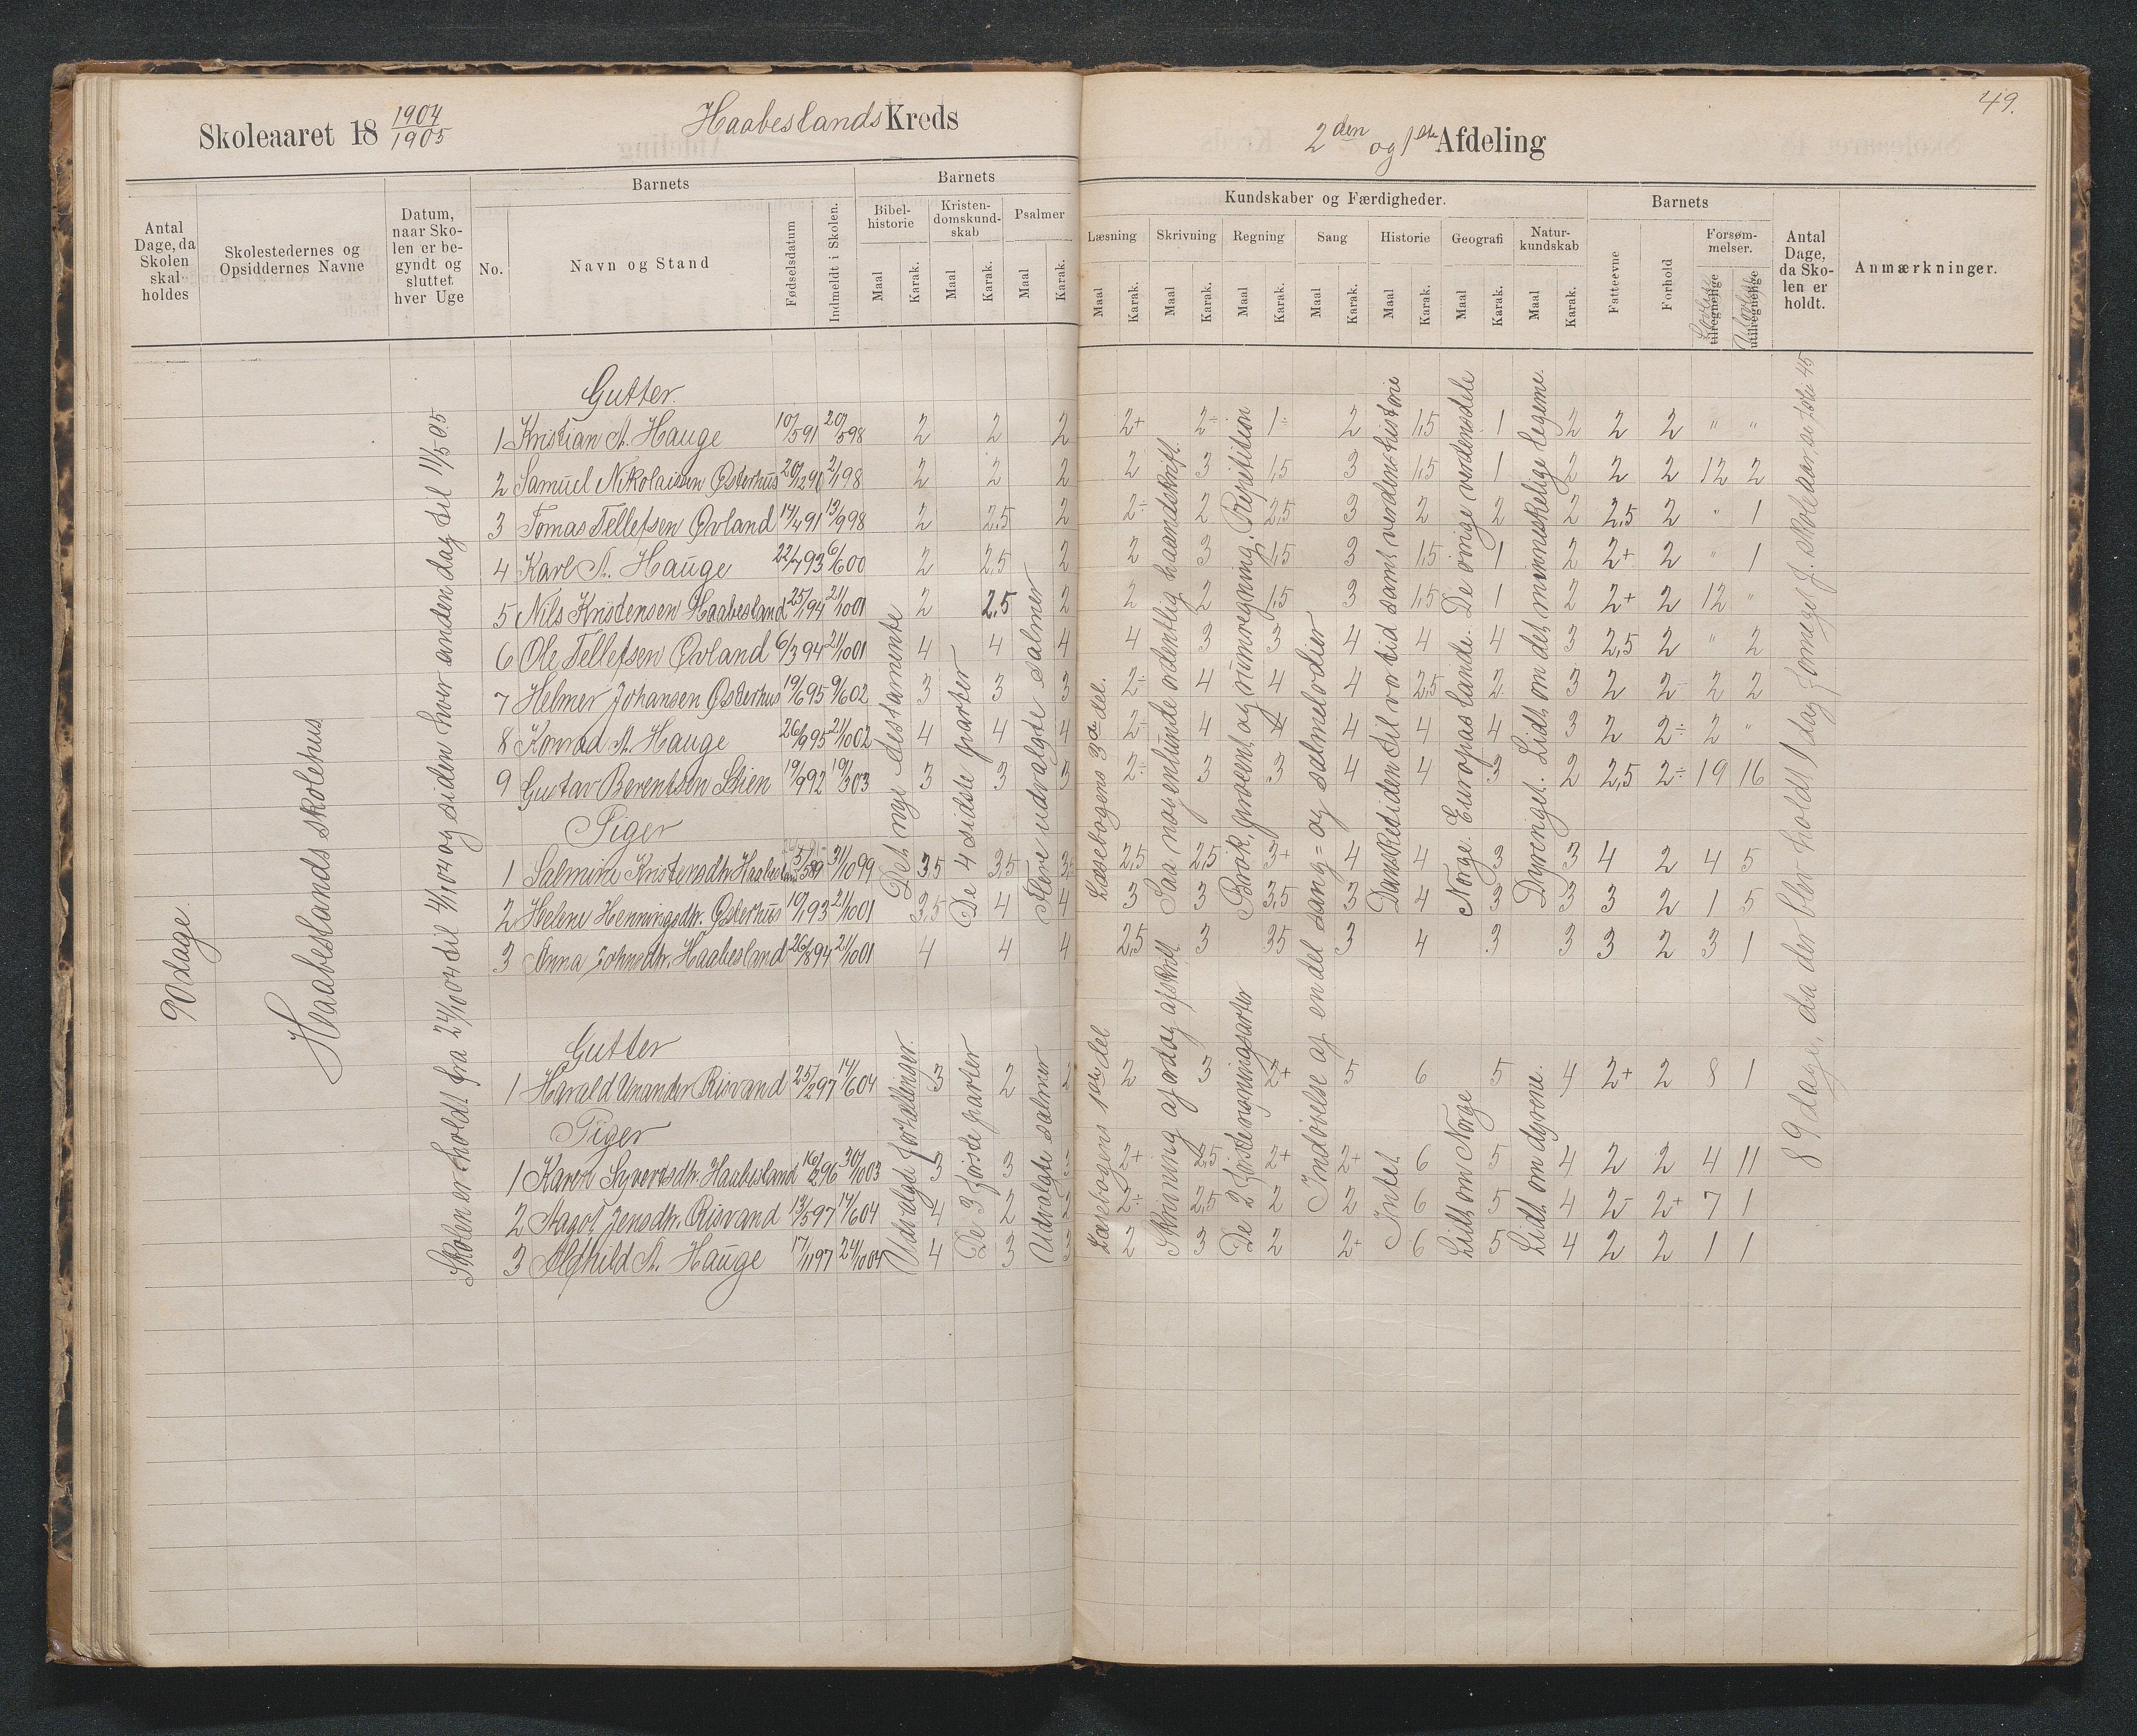 49.
Skoleaaret 18 1904/1905 Haabeslands Kreds
2den og 1ste Afdeling
Antal Dage, da Skolen skal holdes
Skolestedernes og Opsiddernes Navne
Datum, naar Skolen er begyndt og sluttet hver Uge
Barnets
No.
Navn og Stand
Fødselsdatum
Indmeldt i Skolen.
Barnets
Bibelhistorie Maal Karak.
Kristendomskundskab Maal Karak.
Psalmer Maal Karak.
Kundskaber og Færdigheder.
Læsning Maal Karak.
Skrivning Maal Karak.
Regning Maal Karak.
Sang Maal Karak.
Historie Maal Karak.
Geografi Maal Karak.
Naturkundskab Maal Karak.
Barnets
Fatteevne
Forhold
Forsømmelser.
tilregnelige
utilregnelige
Antal Dage, da Skolen er holdt.
Anmærkninger.
90 dage.
Haabeslands skolehus
Skolen er holdt fra 24/10 04 til 4/11 04 og siden hver anden dag til 11/5 05
Det nye testamente
De 4 sidste parter
Flere udvalgte salmer
Læsebogens 3die del.
Saa nogenlunde ordentlig haandskrift.
Brøk, procent og rumregning. Repetition
En del sang= og salmelodier
Dansketiden til vor tid samt verdenshistorie
Norge. Europas lande. De øvrige verdensdele
Dyreriget. Lidt om det menneskelige legeme.
89 dage, da der blev holdt 1 dag formeget f. skoleaar, se side 45
Gutter.
1 Kristian A. Hauge 10/5 91 20/5 98 2 2 2 2+ 2÷ 1÷ 2 1,5 1 2 2 2 " "
2 Samuel Nikolaisen Østerhus 20/12 90 2/1 98 2 2 2 2 3 1,5 3 1,5 1 2 2 2 12 2
3 Tomas Tellefsen Øvland 14/4 91 13/9 98 2 2,5 2 2÷ 2 2,5 3 2 2 2 2,5 2 " 1
4 Karl A. Hauge 22/7 93 6/6 00 2 2,5 2 2 3 1,5 3 1,5 1 2 2+ 2 " 1
5 Nils Kristensen Haabesland 25/1 94 21/10 01 2 2,5 2 2 2 1,5 3 1,5 1 2 2+ 2 12 "
6 Ole Tellefsen Øvland 6/3 94 21/10 01 4 4 4 4 3 3 4 4 4 3 2,5 2 " 2
7 Helmer Johansen Østerhus 19/6 95 9/6 02 3 3 3 2÷ 4 4 4 2,5 2 3 2 2÷ 2 2
8 Konrad A. Hauge 26/9 95 21/10 02 4 4 4 2÷ 4 4 4 4 4 3 2 2÷ 2 "
9 Gustav Berentsen Stien 19/9 92 19/3 03 3 3 3 2÷ 3 3 4 4 3 2 2,5 2÷ 19 16
Piger
1 Salmine Kristensdtr. Haabesland 5/5 89 31/10 99 3,5 3,5 3,5 2,5 2,5 3+ 4 4 3 3 4 2 4 5
2 Helene Henningsdtr. Østerhus 19/1 93 21/10 01 3,5 4 4 3 3 3,5 3 4 3 3 3 2 1 5
3 Anna Johnsdtr. Haabesland 26/8 94 21/10 01 4 4 4 2,5 3 3,5 3 4 3 3 3 2 3 1
Udvalgte fortællinger.
De 3 første parter
Udvalgte salmer
Læsebogens 1ste del
Skrivning af ord og afskrift
De 2 første regningsarter
Indøvelse af
Intet
Lidt om Norge
Lidt om dyrene.
Gutter
1 Harald Unander Risvand 25/2 97 14/6 04 3 2 2 2 3 2+ 5 6 5 4 2+ 2 8 1
Piger
1 Karen Syvertsdtr. Haabesland 16/2 96 30/10 03 3 3 3 2+ 2,5 2+ 2+ 6 5 4 2 2 4 11
2 Aagot Jensdtr. Risvand 13/5 97 14/6 04 4 2 2 2÷ 2,5 2 2 6 5 4 2- 2+ 7 1
3 Alfhild A. Hauge 17/11 97 24/10 04 4 3 3 2 3 2 2+ 6 5 4 2 2 1 1